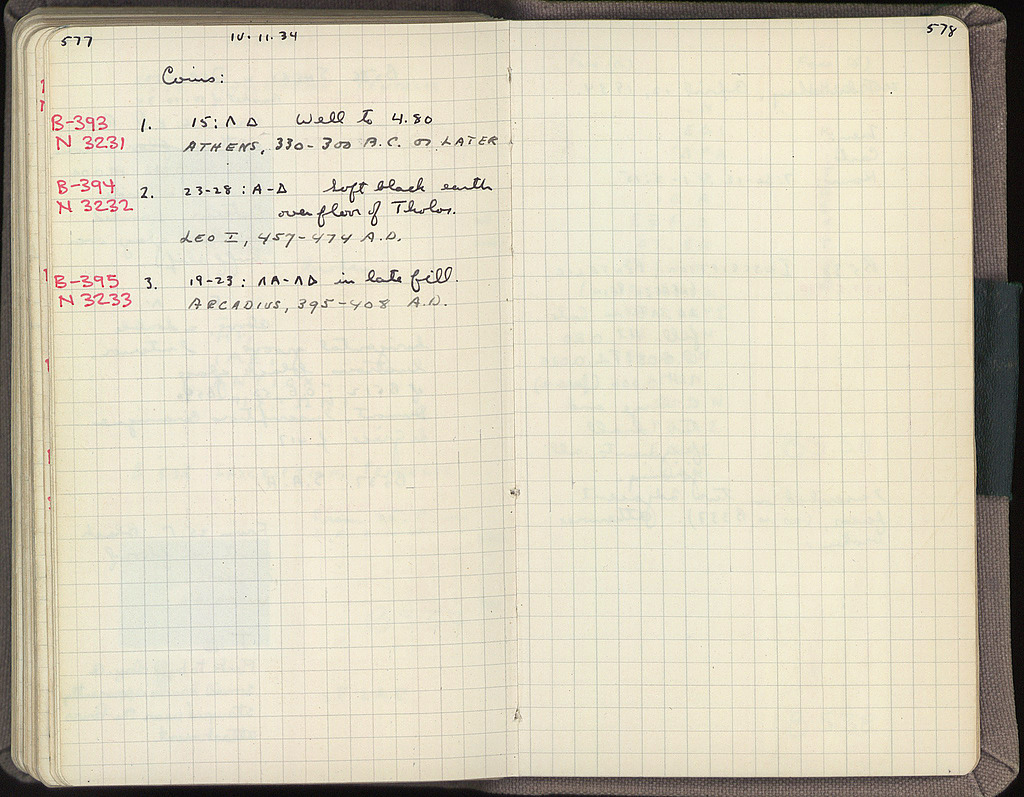 577
IV.11.34
578
Coins:
B-393 1. 15: Λ Δ Well to 4.80
N 3231 ATHENS, 330-300 B.C. or LATER
B-394 2. 23-28: A-Δ Soft black earth
N 3232 over floor of Tholos.
LEO I, 457-474 A.D.
B-395 3. 19-23: ΛA-ΛΔ in late fill.
N 3233 ARCADIUS, 395-408 A.D.